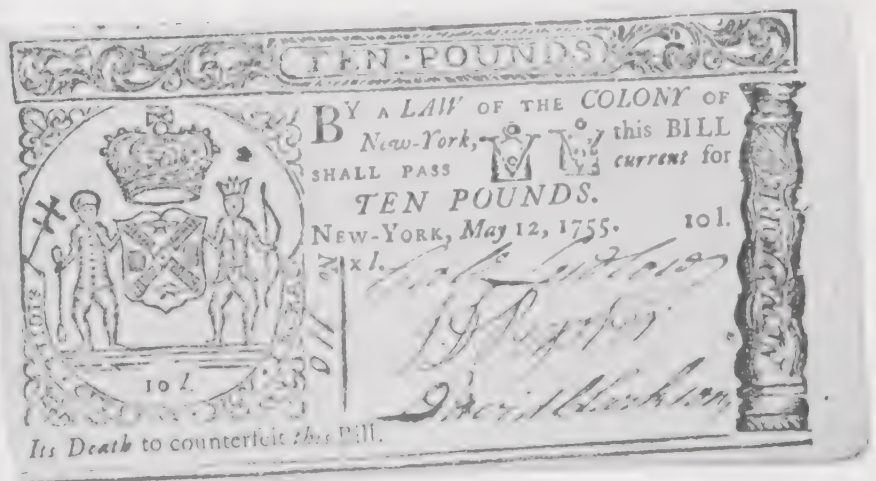 TEN · POUNDS
BY A LAW OF THE COLONY OF
New-York, this BILL
SHALL PASS current for
TEN POUNDS.
NEW-YORK, May 12, 1755. 10 l.
No x l.
10 l.
Its Death to counterfeit this Bill.